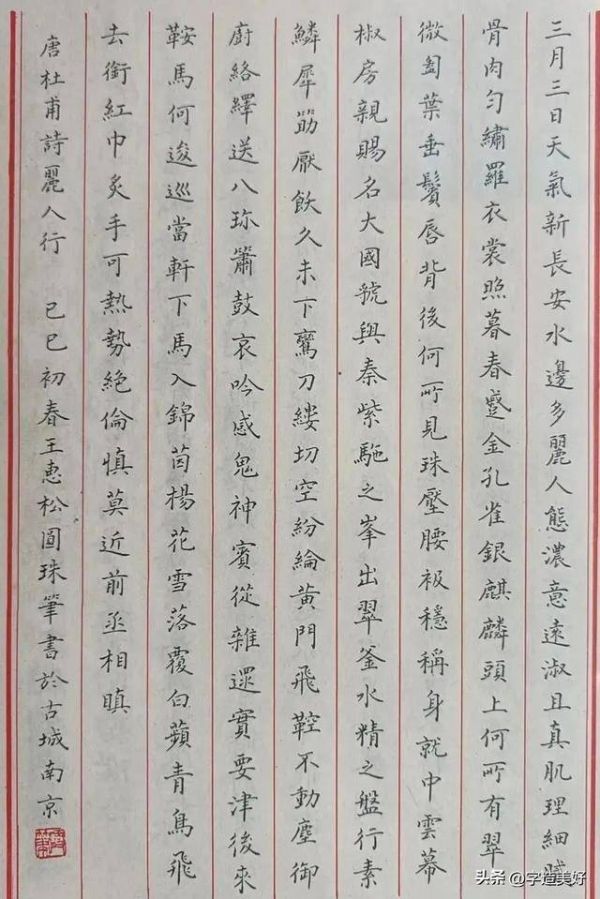 三月三日天氣新長安水邊多麗人態濃意遠淑且真肌理細膩
骨肉勻繡羅衣裳照暮春蹙金孔雀銀麒麟頭上何所有翠
微㔩葉垂鬢唇背後何所見珠壓腰衱穩稱身就中雲幕
椒房親賜名大國虢與秦紫駞之峯出翠釜水精之盤行素
鱗犀筯厭飫久未下鸞刀縷切空紛綸黃門飛鞚不動塵御
廚絡繹送八珎簫鼓哀吟感鬼神賓從雜遝實要津後來
鞍馬何逡巡當軒下馬入錦茵楊花雪落覆白蘋青鳥飛
去銜紅巾炙手可熱勢絕倫慎莫近前丞相瞋
唐杜甫詩麗人行 己巳初春王惠松圓珠筆書於古城南京
头条 @字道美好